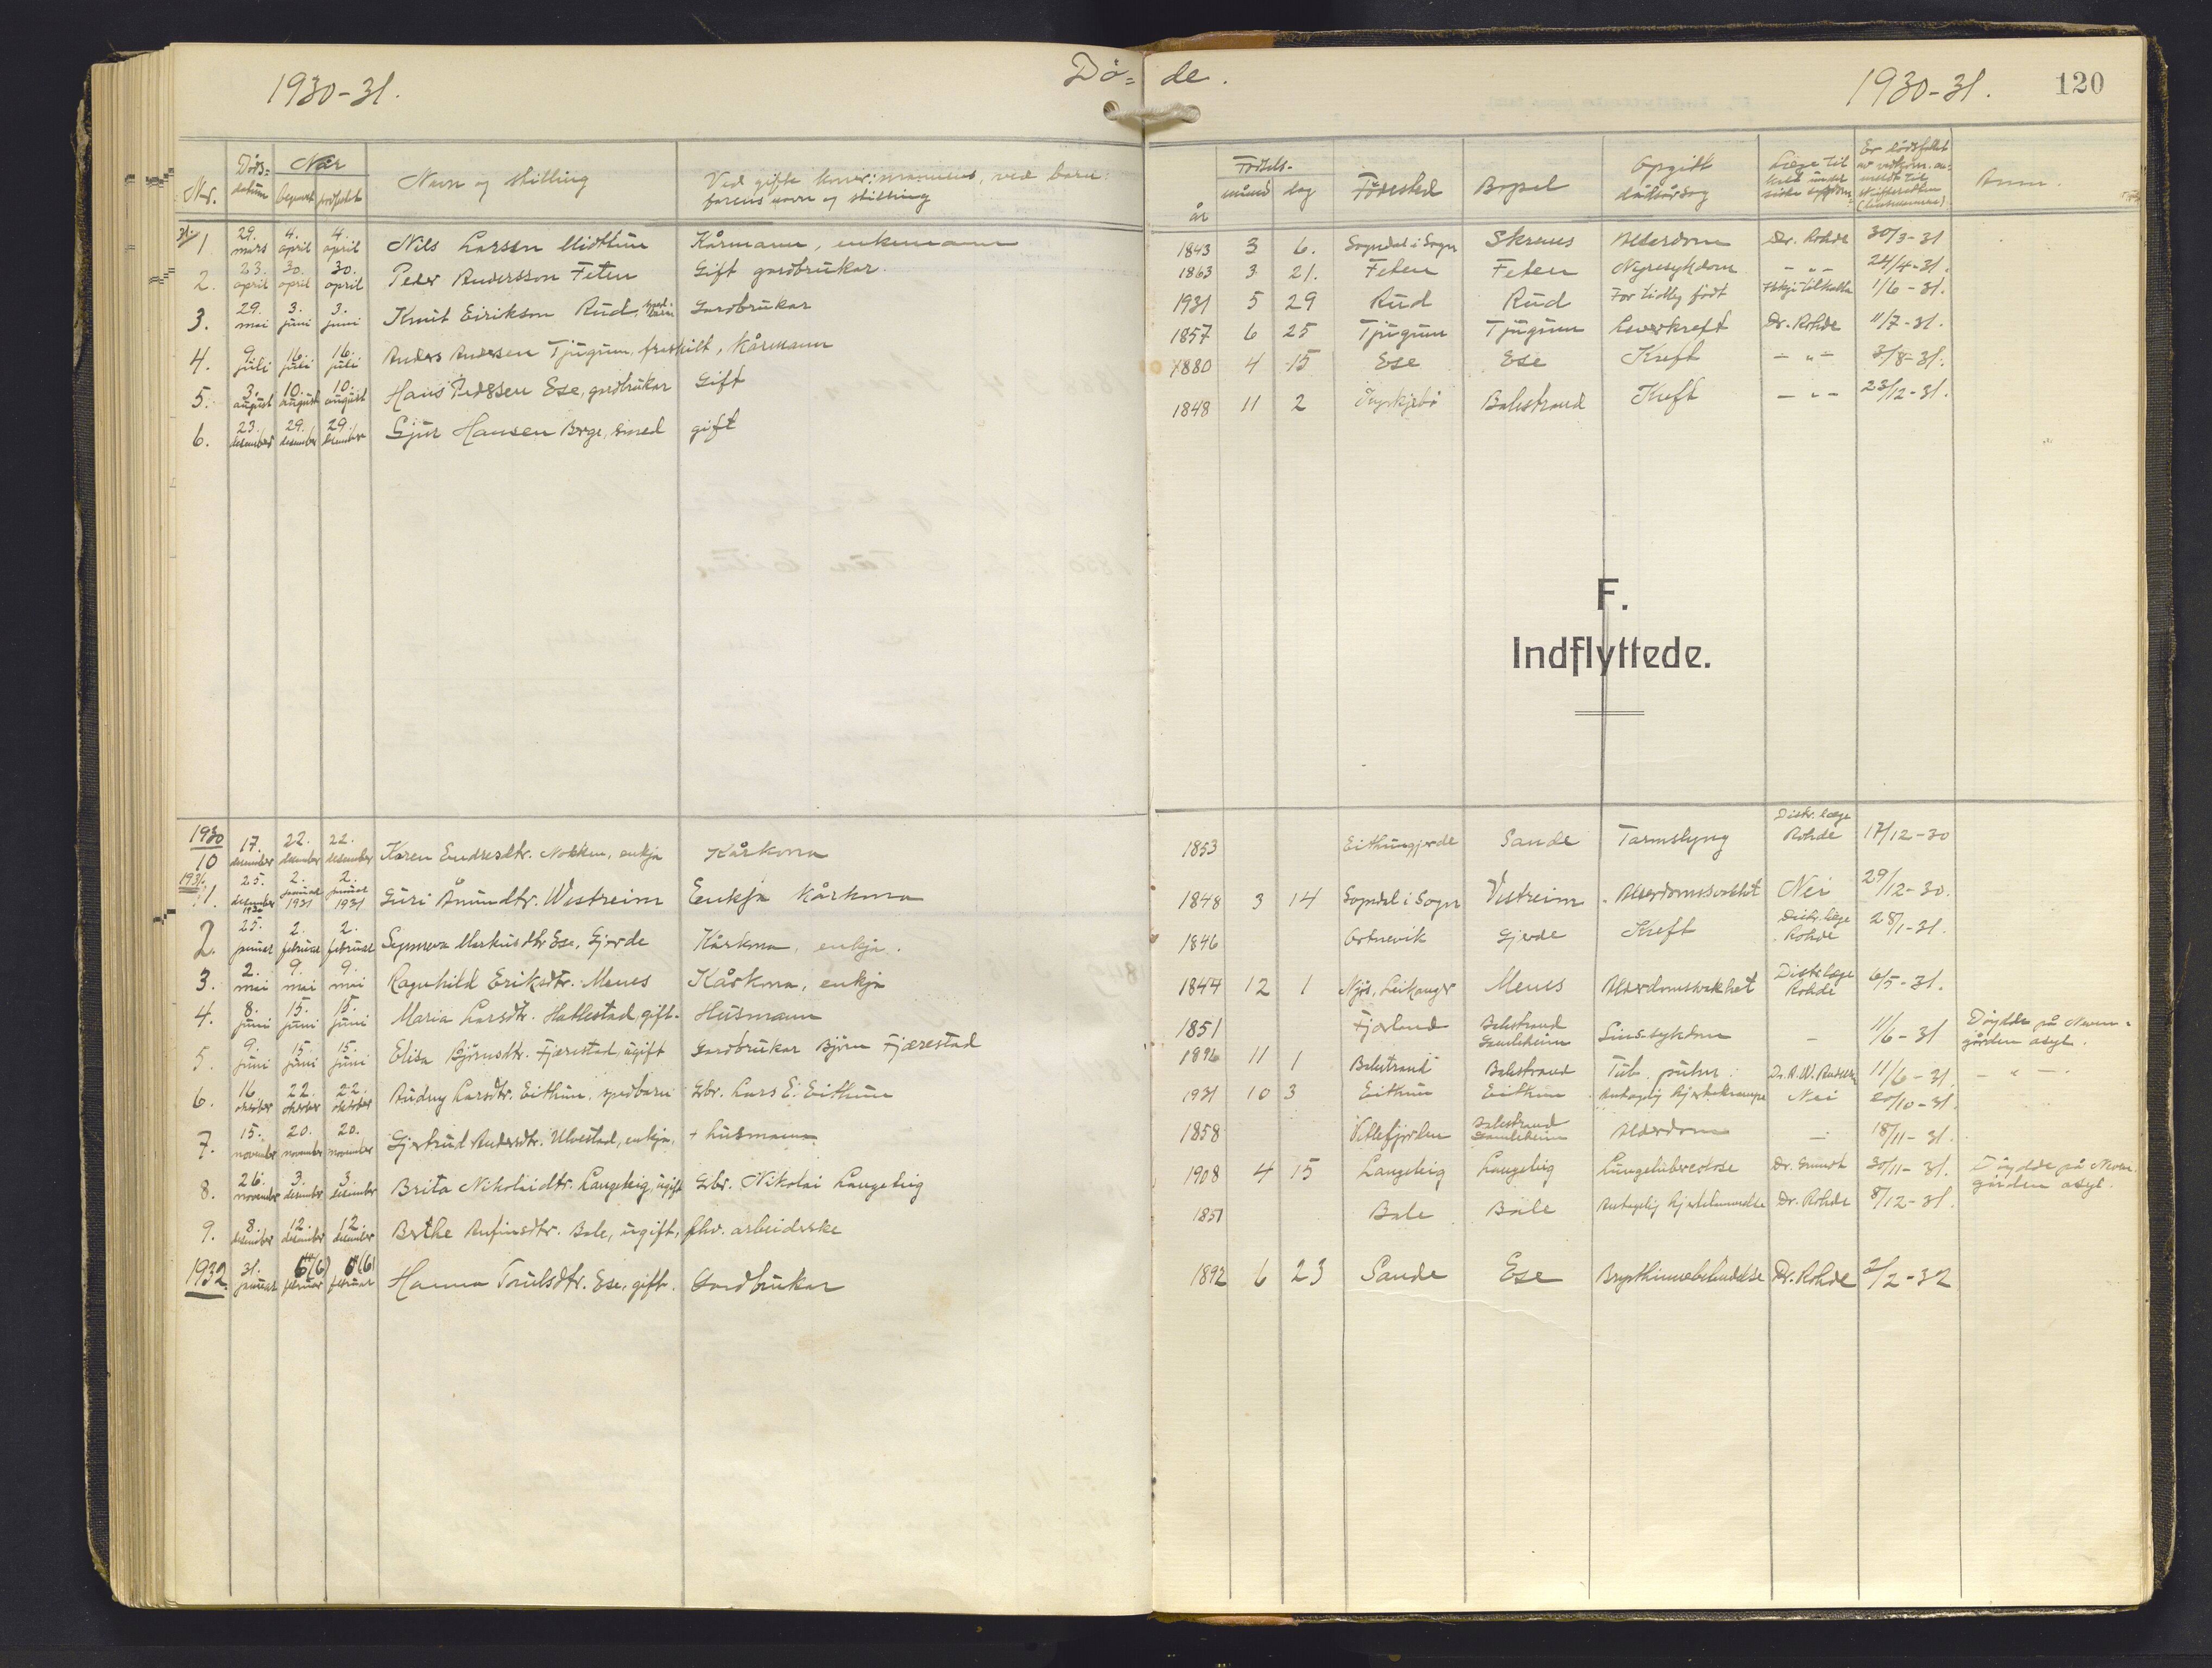 1930-31. Dö= de. 1930-31. 120
Nr. Döds=datum Når begravet jordfestet Navn og stilling Ved gifte koner: mannens, ved barn: farens navn og stilling år Födsels- måned dag Födested Bopel Opgitt dödsårsag Anm.
31/1 29. mars 4. april 4. april Nils Larsen Midtun Kårmann, enkemann 1843 3 6. Sogndal i Sogn Skreus Alderdom Dr. Rohde 30/3-31
2. 23. april 30. april 30. april Peder Andersson Feten Gift gardbrukar. 1863 3 21. Feten Feten Nyresykdom - " - 24/4-31.
3. 29. mai 3. juni 3. juni Knut Eirikson Rud, spedbarn Gardbrukar 1931 5 29 Rud Rud For tidleg födt Ikkje tilkalla 1/6-31.
4. 9. juli 16. juli 16. juli Anders Andersen Tjugum, fraskilt, Kårmann 1857 6 25 Tjugum Tjugum Leverkreft Dr. Rohde 11/7-31.
5. 3. august 10. august 10. august Hans Pedersen Ese, gardbrukar Gift 1880 4 15 Ese Ese Kreft - " - 3/8-31.
6. 23. desember 29. desember 29. desember Sjur Hansen Berge, smed gift 1848 11 2 Balestrand Kreft - " - 23/12-31.
F.
Indflyttede.
1930
10 17. desember 22. desember 22. desember Karen Endresdtr. Nokken, enkja Kårkona 1853 Eithungjerde Sande Tarmslyng Distr. læge Rohde 17/12-30
1931
1. 25. desember 1930 2. januar 1931 2. januar 1931 Guri Åmundtr. Vestreim Eenkja Kårkona 1848 3 14 Sogndal i Sogn Vestreim Alderdomssvakhet Nei 29/12-30.
2. 25. januar 2. februar 2. februar Synneva Markusdtr Ese, Gjerde Kårkona, enkja. 1846 Ortnevik Gjerde Kreft Distr. læge Rohde 28/1-31.
3. 2. mai 9. mai 9. mai Ragnhild Eriksdtr. Menes Kårkona, enkja 1844 12 1 Njös, Leikanger Menes Alderdomssvakhet Distr. læge Rohde 6/5-31.
4. 8. juni 15. juni 15. juni Maria Larsdtr. Hatlestad, gift. Husmann 1851 Fjærland Balestrand Gamleheim Sinssykdom - 11/6-31 Döydde på Neven-gården asyl.
5. 9. juni 15. juni 15. juni Elisa Björnsdtr. Fjærestad, ugift Gardbrukar Björn Fjærestad 1896 11 1 Balestrand Balestrand Tub. pulm. 11/6-31 - " -.
6. 16. oktober 22. oktober 22. oktober Audny Larsdtr. Eithun, spedbarn Gbr. Lars E. Eithun 1931 10 3 Eithun Eithun Antagelig hjertekrampe Nei 20/10-31.
7. 15. november 20. november 20. november Gjertrud Andersdtr. Ulvestad, enkja, + husmann. 1858 Vetlefjorden Balestrand Gamleheim Alderdom - 18/11-31.
8. 26. november 3. desember 3. desember Brita Nikolaidtr. Langeteig, ugift Gbr. Nikolai Langeteig 1908 4 15 Langeteig Langeteig Lungetuberculose Dr. Grundt 30/11-31. Döydde på Neven-gården asyl.
9. 8. desember 12. desember 12. desember Berthe Anfinsdtr. Bale, ugift, fhv. arbeiderske 1851 Bale Bale Antagelig hjertelammelse Dr. Rohde 8/12-31.
1932 31. januar 6 (6) februar 6 (6) februar Hanna Trulsdtr. Ese, gift. Gardbrukar 1892 6 23 Sande Ese Brysthinnebetendelse Dr. Rohde 2/2-32